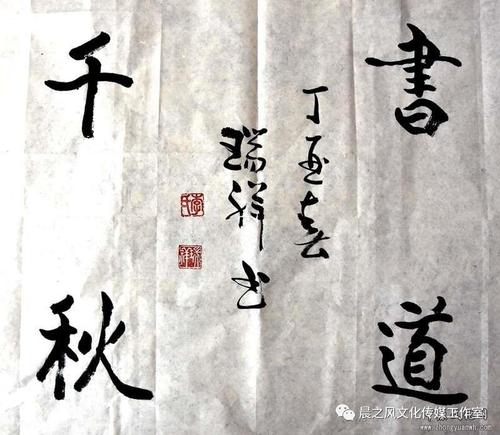 書道
千秋
丁酉春
瑞祥书
晨之风文化传媒工作室
www.zhongyuanwh.com